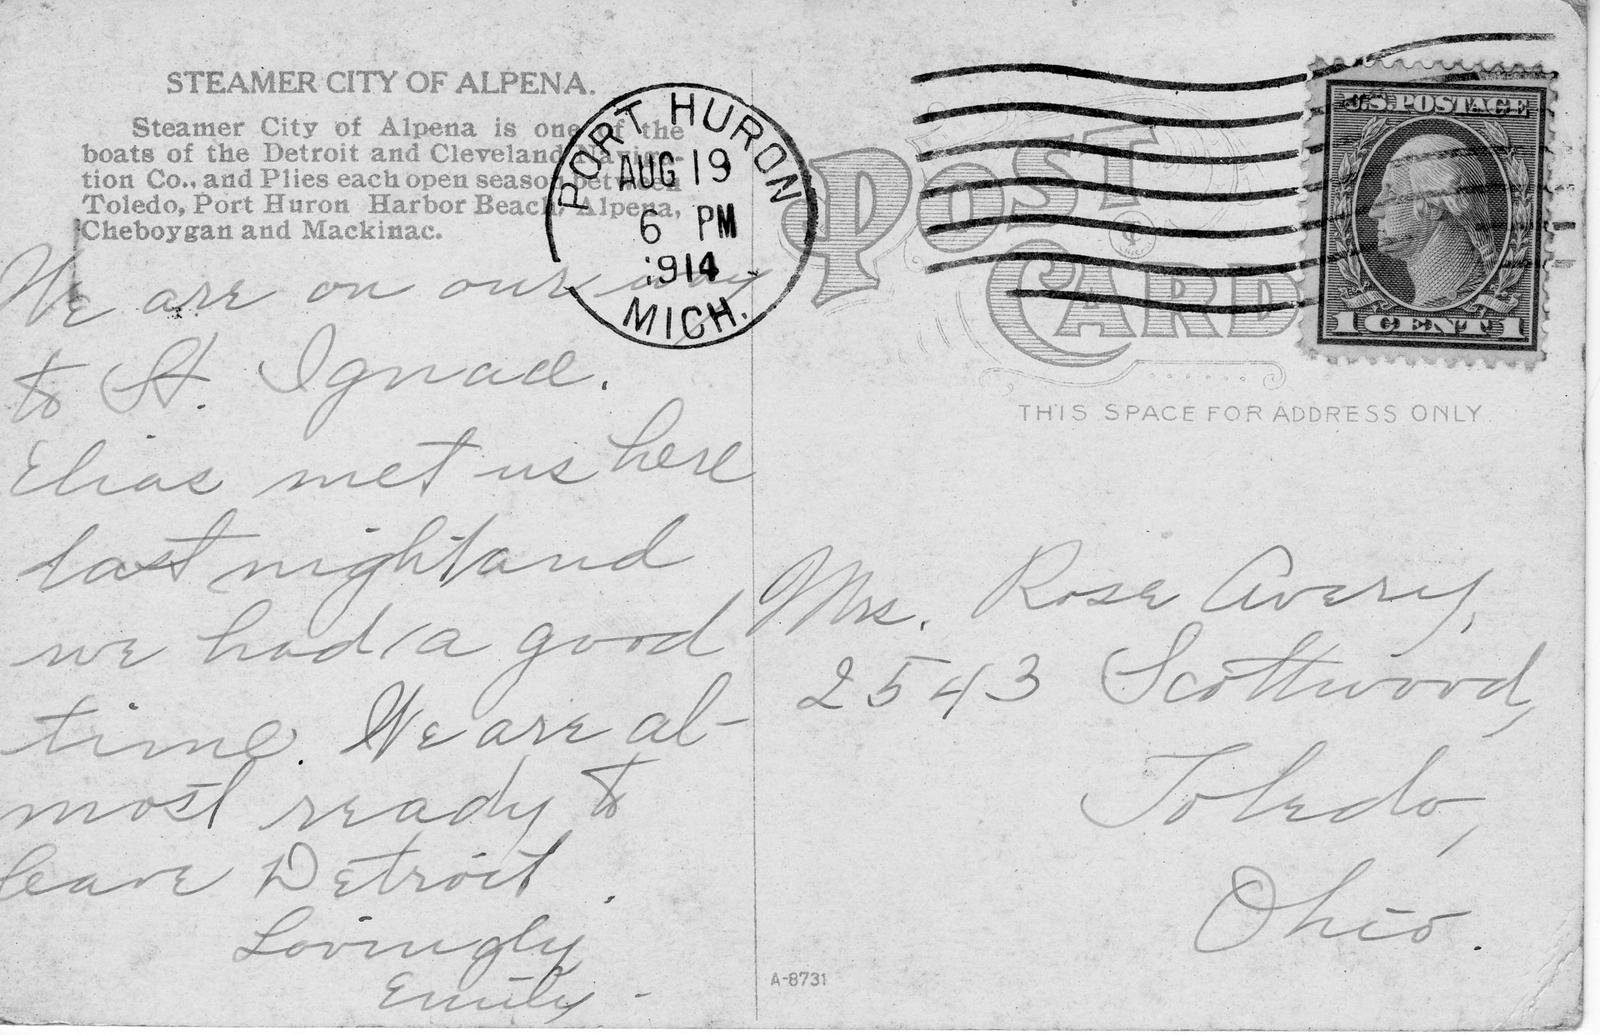 STEAMER CITY OF ALPENA.
Steamer City of Alpena is one of the
boats of the Detroit and Cleveland Naviga-
tion Co., and Plies each open season between
Toledo, Port Huron Harbor Beach, Alpena,
Cheboygan and Mackinac.
We are on our way
to St. Ignace.
Elias met us here
last night and
we had a good
time. We are al-
most ready to
leave Detroit.
Lovingly
Emily.
PORT HURON
AUG 19
6 PM
1914
MICH.
POST CARD
U.S. POSTAGE
1 CENT 1
THIS SPACE FOR ADDRESS ONLY.
Mrs. Rose Avery,
2543 Scottwood,
Toledo,
Ohio.
A-8731